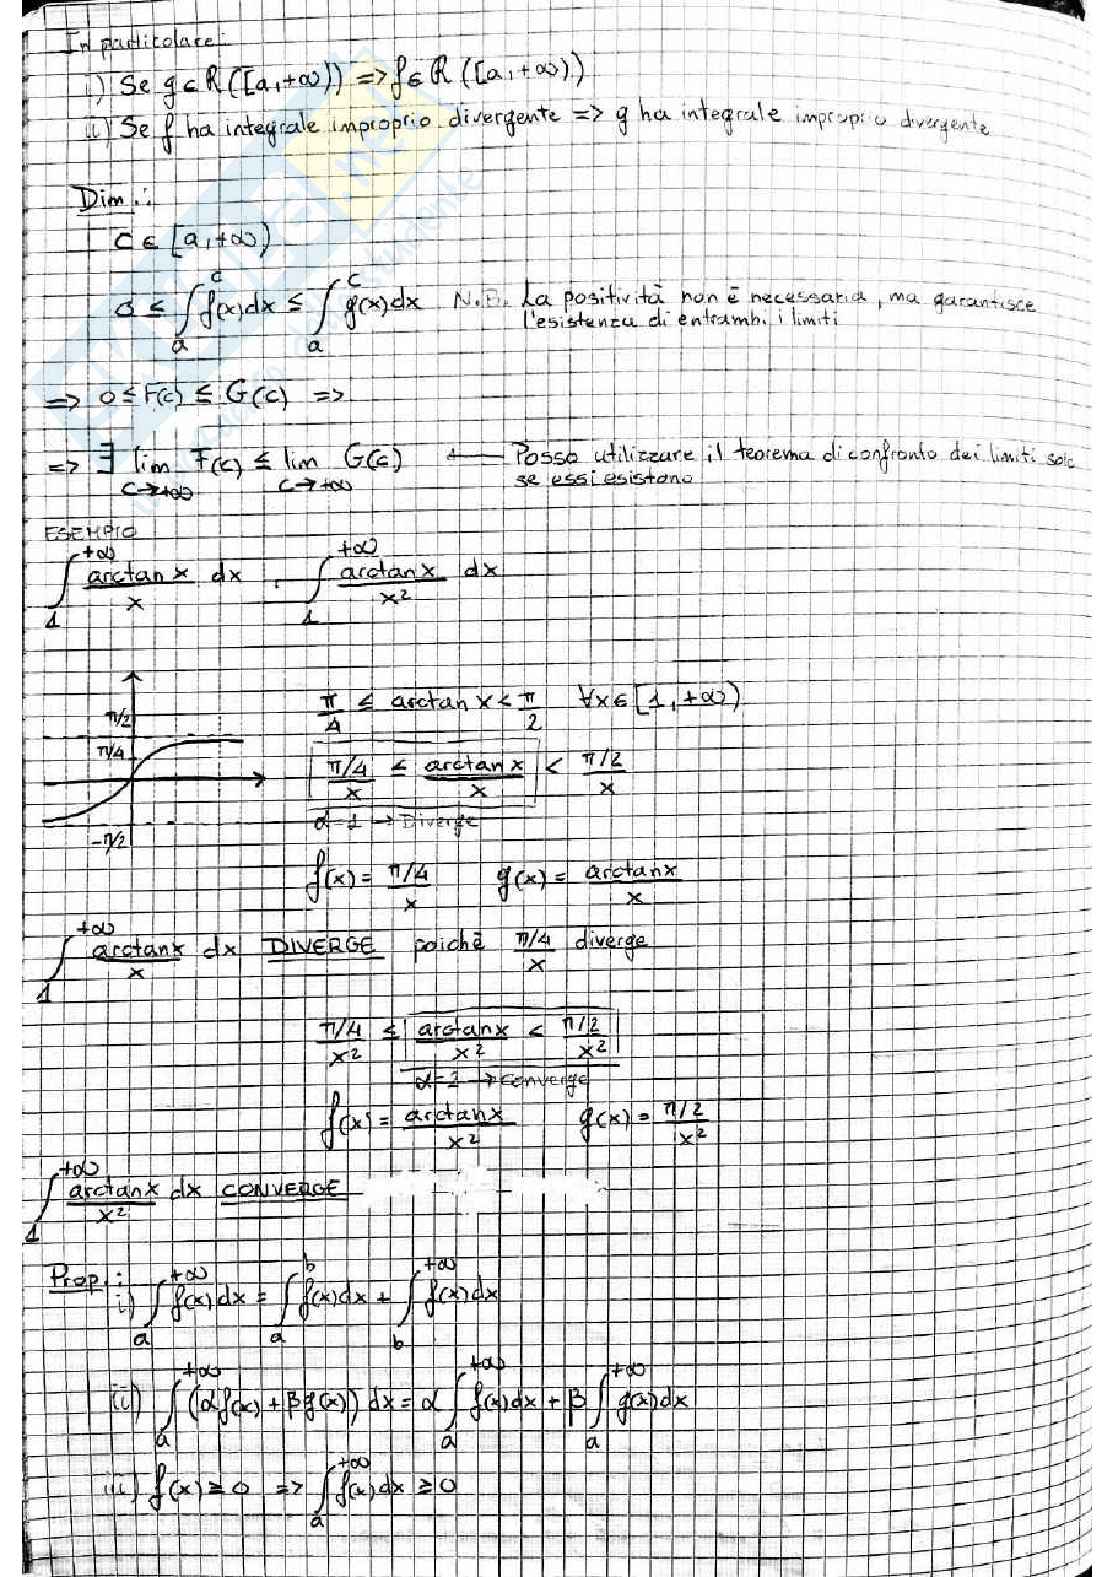 In particolare:
i) Se g ∈ R([a,+∞)) => f ∈ R([a,+∞))
ii) Se f ha integrale improprio divergente => g ha integrale improprio divergente
Dim.:
c ∈ [a,+∞)
0 ≤ ∫_a^c f(x)dx ≤ ∫_a^c g(x)dx N.B. La positività non è necessaria, ma garantisce
l'esistenza di entrambi i limiti
=> 0 ≤ F(c) ≤ G(c) =>
=> ∃ lim_{c→+∞} F(c) ≤ lim_{c→+∞} G(c) ← Posso utilizzare il teorema di confronto dei limiti solo
se essi esistono
ESEMPIO
∫_1^{+∞} arctan x / x dx , ∫_1^{+∞} arctan x / x² dx
π/2
π/4
-π/2
π/4 ≤ arctan x < π/2 ∀x ∈ [1,+∞)
π/4 / x ≤ arctan x / x < π/2 / x
α=1 → Diverge
f(x) = π/4 / x g(x) = arctan x / x
∫_1^{+∞} arctan x / x dx DIVERGE poiché π/4 / x diverge
π/4 / x² ≤ arctan x / x² < π/2 / x²
α=2 → Converge
f(x) = arctan x / x² g(x) = π/2 / x²
∫_1^{+∞} arctan x / x² dx CONVERGE
Prop.:
i) ∫_a^{+∞} f(x)dx = ∫_a^b f(x)dx + ∫_b^{+∞} f(x)dx
ii) ∫_a^{+∞} (αf(x) + βg(x)) dx = α ∫_a^{+∞} f(x)dx + β ∫_a^{+∞} g(x)dx
iii) f(x) ≥ 0 => ∫_a^{+∞} f(x)dx ≥ 0